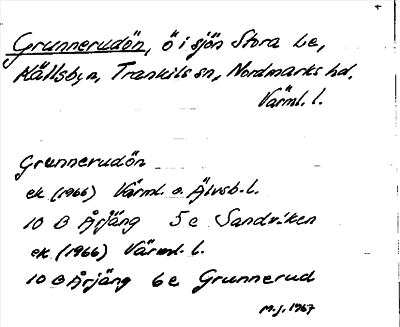 Grunnerudön, ö i sjön Stora Le,
Källsbyn, Trankils sn, Nordmarks hd.
Värml. l.
Grunnerudön
ek (1966) Värml. o. Älvsb. l.
10 B Årjäng 5 e Sandviken
ek (1966) Värml. l.
10 B Årjäng 6e Grunnerud
M.J. 1967